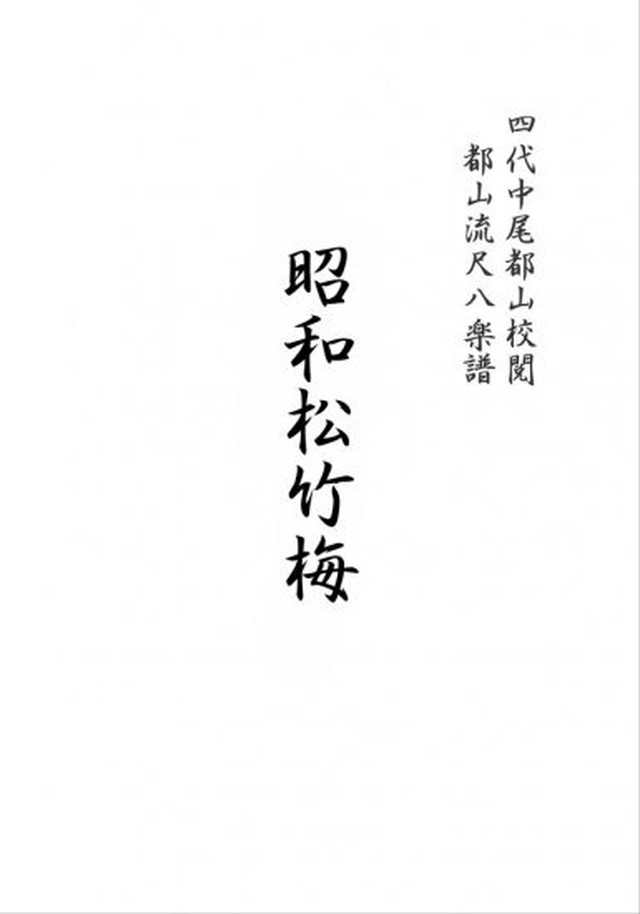 四代中尾都山校閲
都山流尺八楽譜
昭和松竹梅